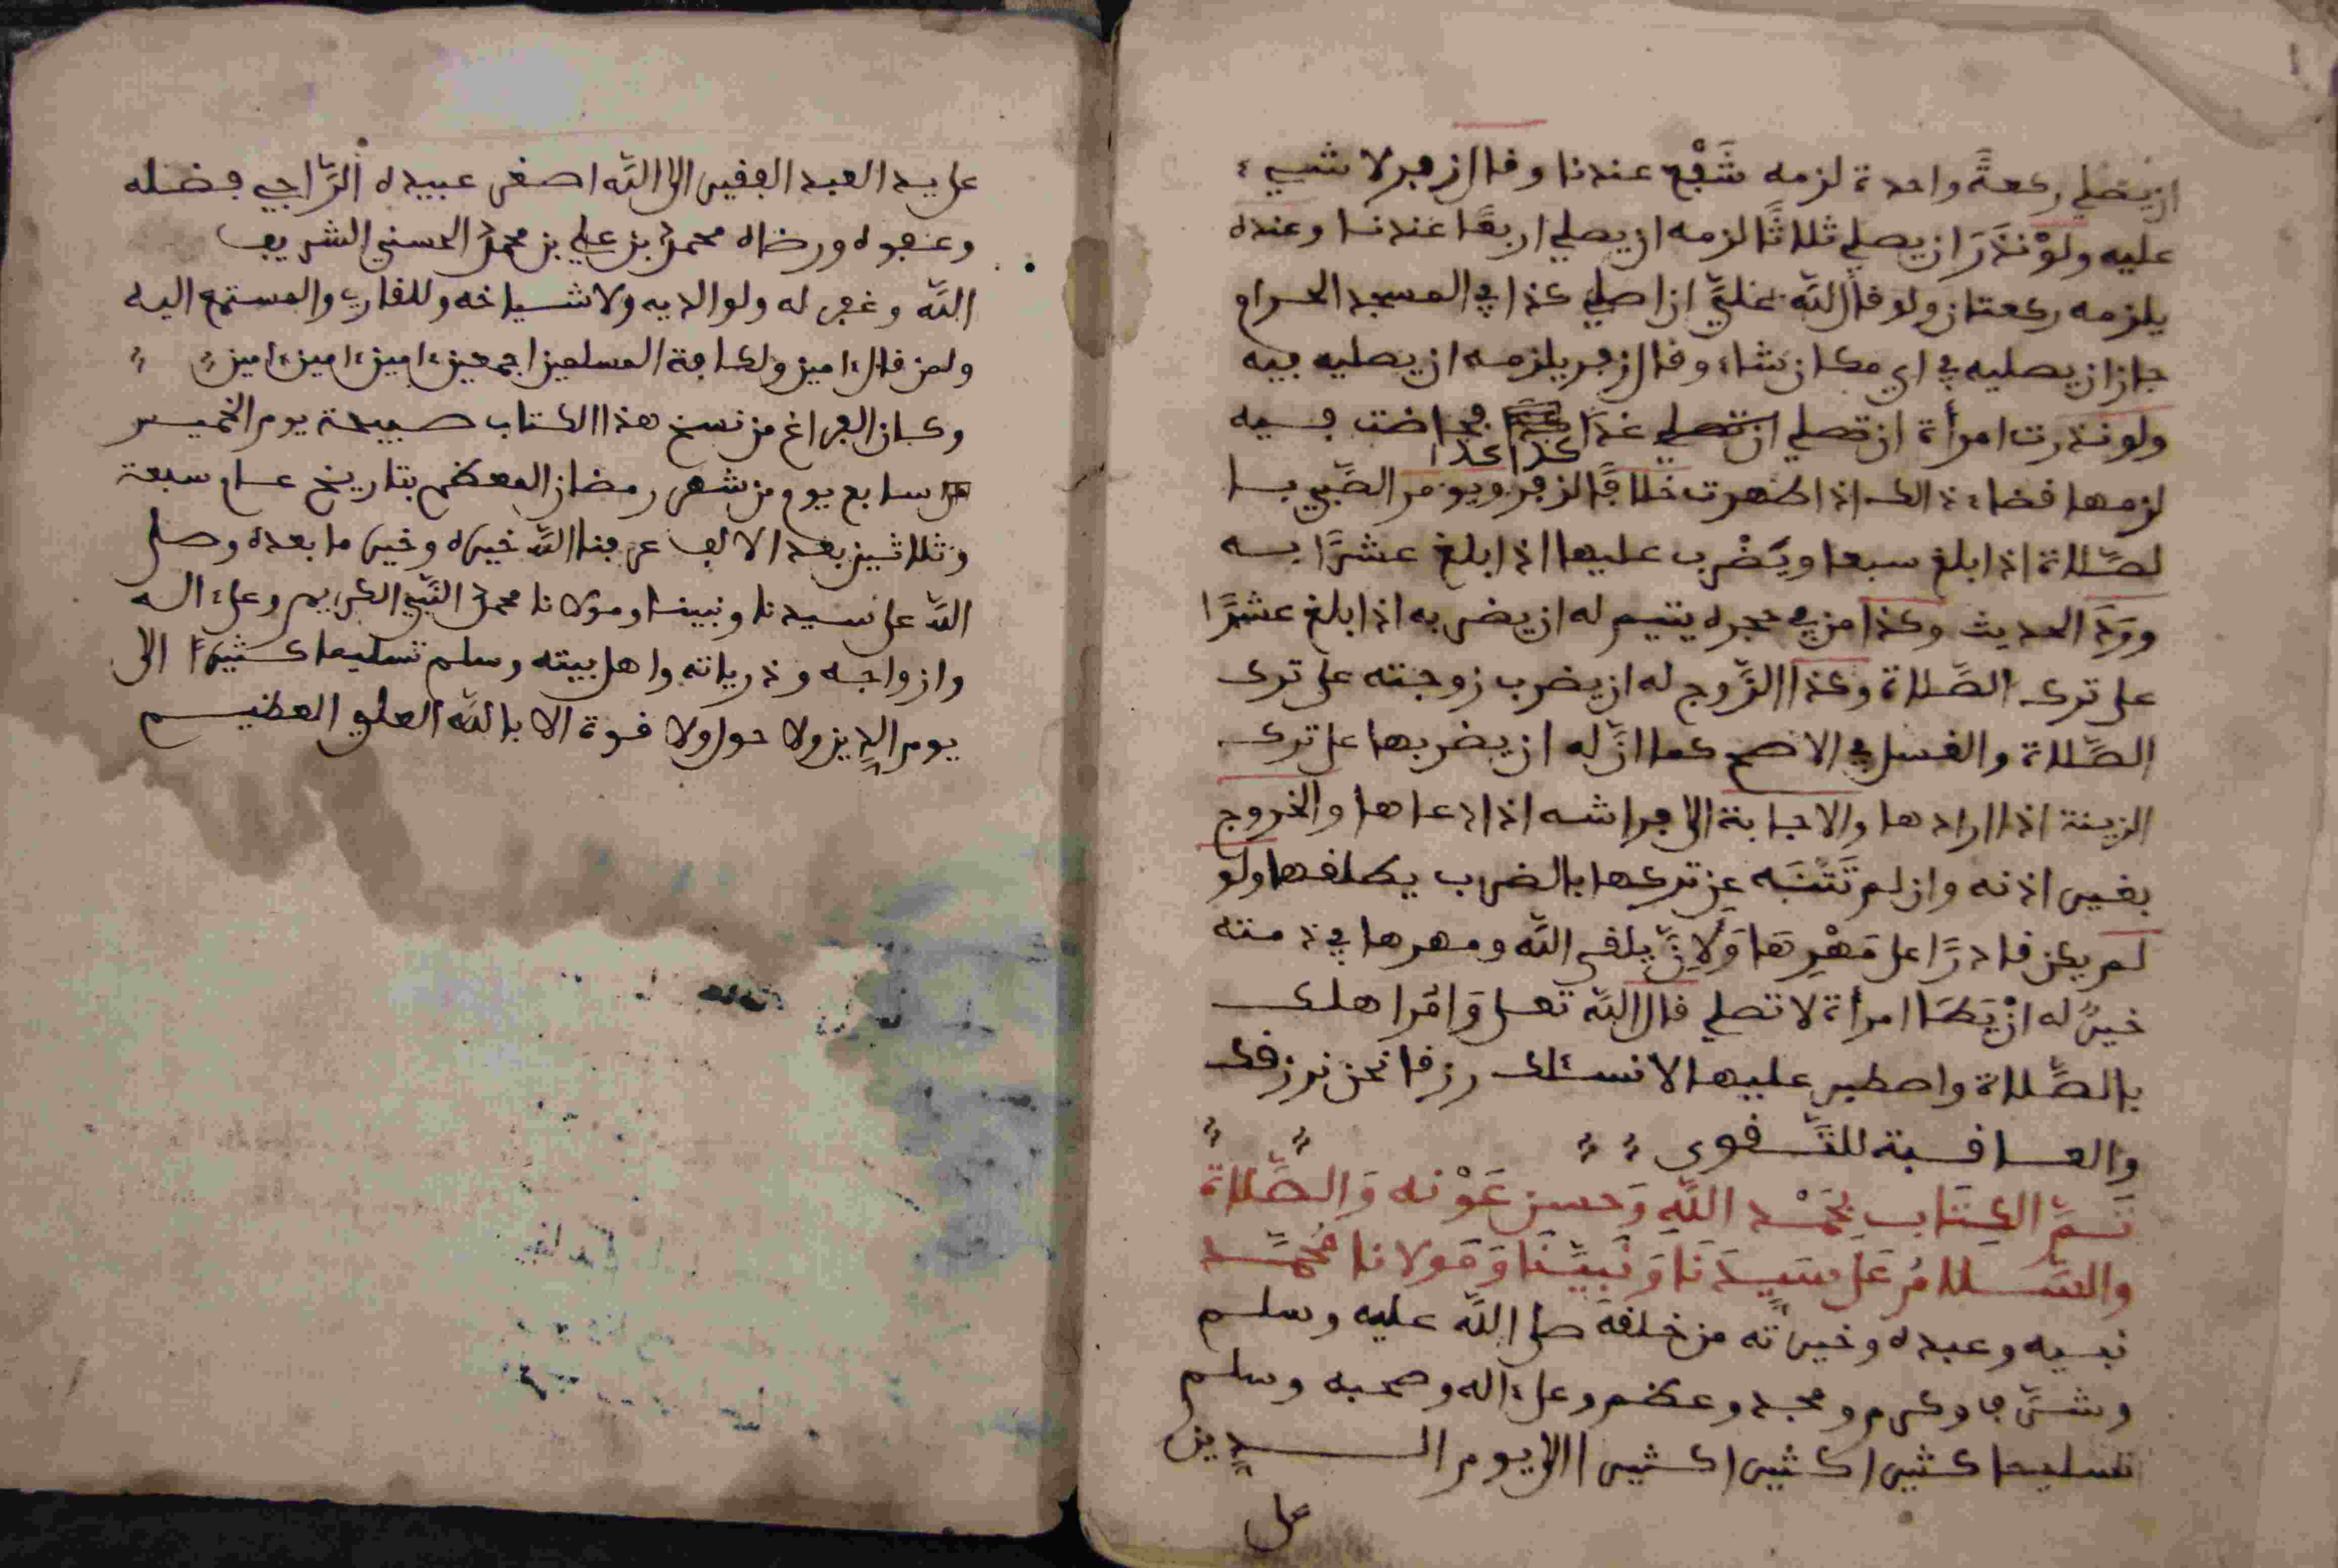 ان يصلي ركعةً واحدة لزمه شَفْع عندنا وقال زفر لا شيء
عليه ولوْ نذَرَ ان يصلي ثلاثًا لزمه ان يصلي اربعًا عندنا وعنده
يلزمه ركعتان ولو قال لله عليَّ ان اصلي كذا في المسجد الحرام
جاز ان يصليه في اي مكان شاء وقال زفر يلزمه ان يصليه فيه
ولو نذرت امرأة ان تصلي ان تصلي غدا كذا كذا فحاضت فيه
لزمها قضاء ذالك اذا طهرت خلافًا لزفر ويومر الصَّبي با
لصَّلاة اذا بلغ سبعا ويَضْرب عليها اذا بلغ عشرًا به
وورَدَ الحديث وكذا من في حجره يتيم له ان يضربه اذا بلغ عشرًا
على ترك الصَّلاة وكذا الزَّوج له ان يضرب زوجته على ترك
الصَّلاة والغسل في الاصح كما انَّ له ان يضربها على ترك
الزينة اذا ارادها والاجابة الى فراشه اذا دعاها والخروج
بغير اذنه وان لم تَنْتَه عن تركها بالضرب يطلقها ولو
لم يكن قادرًا على مَهْرِهَا وَلَاِنْ يلقى اللّه ومهرها في ذمته
خيرٌ له انْ يَطَا امرأة لا تصلي قال اللّه تعلى وَامُرا هلك
بالصَّلاة واصطبر عليها لا نسئلك رزقا نحن نرزقك
والعاقبة للتَّقوى
تَمَّ الكِتَاب بحَمْد اللَّهِ وَحسن عَوْنه وَالصَّلاة
والسَّلامُ عَلَى سَيِدَنَا وَنَبِيِّنَا وَمَولانا مُحَمَّد
نبيه وعبده وخيرَته من خلقه صلى اللّه عليه وسلم
وشرَّف وكرم ومجد وعظم وعلى ءاله وصحبه وسلم
تسليما كثيرا كثيرا كثيرا الى يوم الدين
على
على يد العبد الفقير الى اللّه اصغر عبيده الرَّاجي فضله
وعفوه ورضاه محمد بن علي بن محمد الحسني الشريف
اللّه وغفر له ولوالديه ولاشياخه وللقاري والمستمع اليه
ولمن قال ءامين ولكافة المسلمين اجمعين ءامين ءامين ءامين
وكان الفراغ من نسخ هذا الكتاب صبيحة يوم الخميس
سابع يوم من شهر رمضان المعظم بتاريخ عام سبعة
وثلاثين بعد الالف عرفنا اللّه خيره وخير ما بعده وصلى
اللّه على سيدنا ونبينا ومولانا محمد النَّبي الكريم وعلى ءاله
وازواجه وذرياته واهل بيته وسلم تسليما كثيرًا الى
يوم الدين ولا حول ولا قوة الا باللّه العلي العظيم